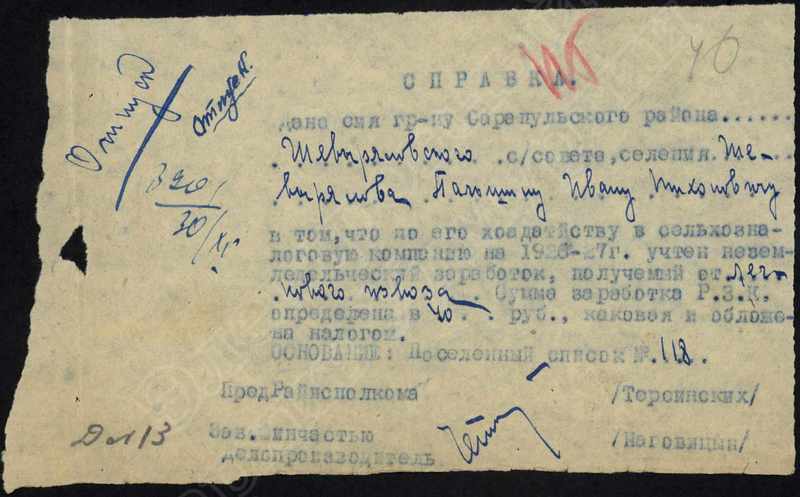 46
СПРАВКА.
Отпуск
отпуск.
дана сия гр-ну Сарапульского района......
Шевыряловского с/совета, селения Ше-
вырялова Пальшину Ивану
3201
30/XI
в том, что по его хозяйству в сельхозна-
логовую компанию на 1926-27г. учтен незем-
ледельческий заработок, получемый от лег-
кового извоза. Сумма заработка Р.З.К.
определена в 40 . руб., каковая и обложе-
на налогом.
ОСНОВАНИЕ: Поселенный список №.118.
ПредРайисполкома /Терсинских/
Зав. финчастью
делопроизводитель /Наговицын/